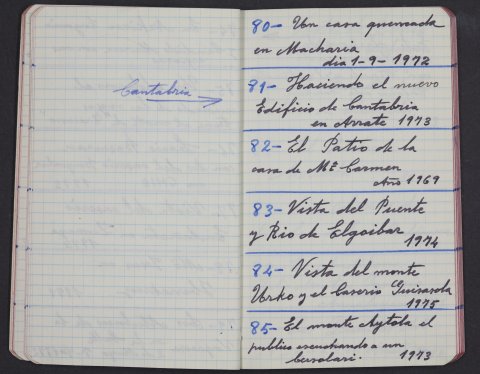 Cantabria
80- Un casa quemada
en Macharia
dia 1-9-1972
81- Haciendo el nuevo
Edificio de Cantabria
en Arrate 1973
82- El Patio de la
casa de Mª Carmen
Año 1969
83- Vista del Puente
y Rio de Elgoibar
1974
84- Vista del monte
Urko y el Caserio Guisasola
1975
85- El monte Aytola el
publico escuchando a un
bersolari. 1973